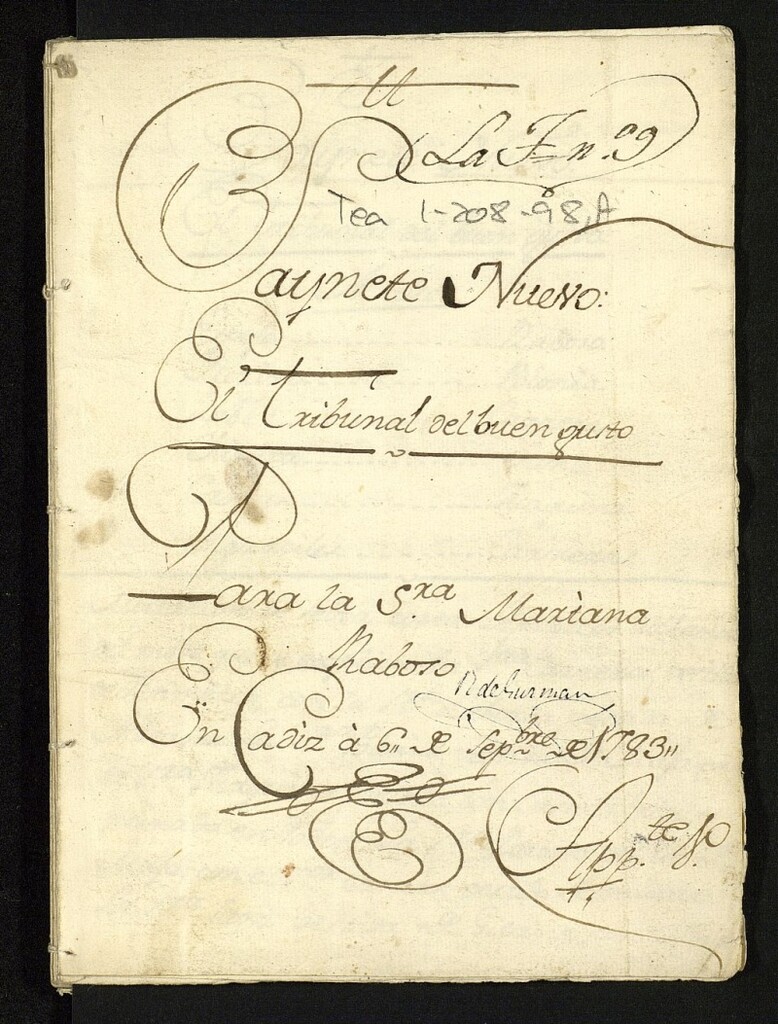 La F n.º 9
Tea 1-208-98, A
Saynete Nuevo:
El Tribunal del buen gusto
Para la S.ra Mariana
Raboso
En Cadiz à 6,, de Sepbre de 1783,,